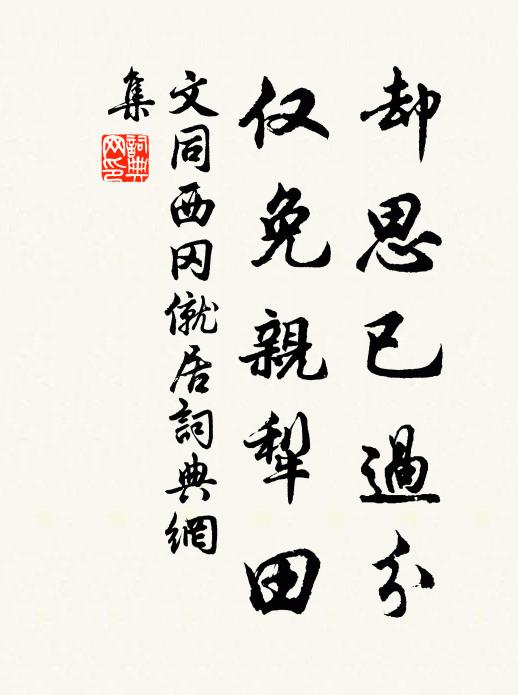 却思已過分
仅免親犁田
文同西冈僦居詞典網
集
詞典網印